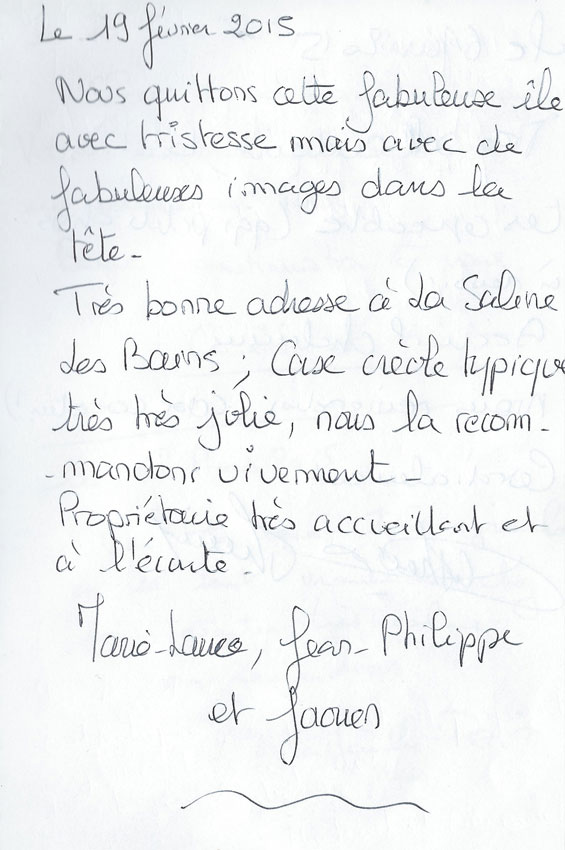 Le 19 février 2015
Nous quittons cette fabuleuse île
avec tristesse mais avec de
fabuleuses images dans la
tête-
Très bonne adresse à La Saline
des Bains ; Case créole typique
très très jolie, nous la recom-
-mandons vivement-
Propriétaire très accueillant et
à l'écoute.
Jean-Philippe
et